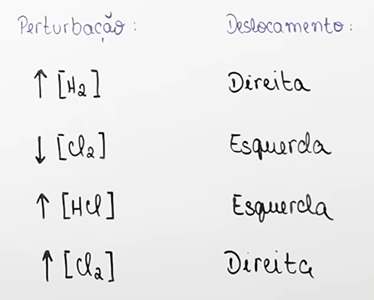 Perturbação: Deslocamento:
↑ [H₂] Direita
↓ [Cl₂] Esquerda
↑ [HCl] Esquerda
↑ [Cl₂] Direita